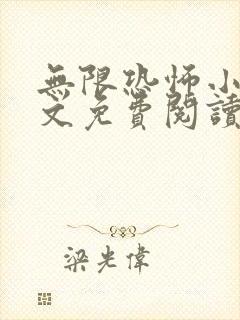 無限恐怖小
文免費閱讀
梁光偉